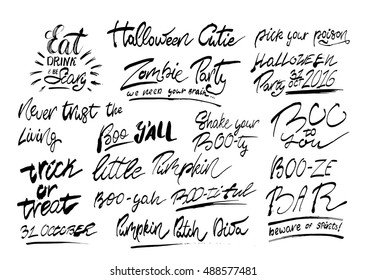 Eat
DRINK
& BE
Scary
Halloween Cutie
pick your poison
Zombie Party
we need your brain
HALLOWEEN
Party 31 oct 2016
Never trust the
Living
Boo Y'ALL
Shake your
BOO-ty
BOO
to
you
trick
or
treat
31 OCTOBER
little Pumpkin
BOO-yah
BOO-ziful
BOO-ZE
BAR
beware of spirits!
Pumpkin Patch Diva
shutterstock.com · 488577481